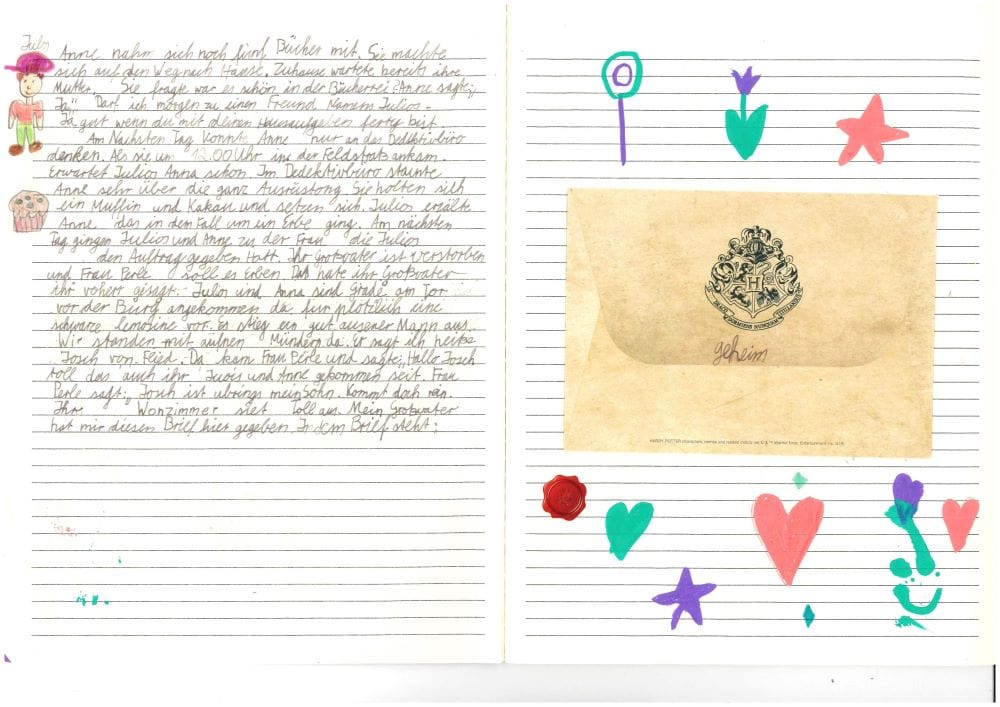 Julios
Anne nahm sich noch fünf Bücher mit. Sie machte
sich auf den Weg nach Hause. Zuhause wartete bereits ihre
Mutter. Sie fragte war es schön in der Bücherrei? Anne sagte„
Ja". Darf ich morgen zu einen Freund Namens Julios -
Ja gut wenn du mit deinen Hausaufgaben fertig bist.
Am Nächsten Tag konnte Anne nur an das Dedektivbüro
denken. Als sie um 12.00 Uhr in der Feldstraß ankam.
Erwartet Julios Anna schon. Im Dedektivbüro staunte
Anne sehr über die ganz Ausrüstong. Sie holten sich
ein Muffin und Kakau und setzen sich. Julios erzälte
Anne das in dem Fall um ein Erbe ging. Am nächsten
Tag gingen Julios und Anne zu der Frau die Julios
den Auftrag gegeben Hatt. Ihr Großvater ist verstorben
und Frau Perle soll es Erben. Das hate ihr Großvater
ihr vohert gesagt. Julos und Anna sind grade am Tor
vor der Burg angekommen da fur plötzlich eine
schwarze lemousine vor. Es stieg ein gut ausener Mann aus.
Wir standen mit aufnen Mündern da. Er sagt ich heiße
Josch von Flied. Da kam Frau Perle und sagte„ Hallo Josch
toll das auch ihr Juois und Anne gekommen seit. Frau
Perle sagt„ Josch ist übrings mein Sohn. Kommt doch rein.
Ihr Wonzimmer siet Toll aus. Mein Großvater
hat mir diesen Brief hier gegeben. In dem Brief steht:
H
DRACO DORMIENS NUNQUAM TITILLANDUS
geheim
HARRY POTTER characters, names and related indicia are © & ™ Warner Bros. Entertainment Inc.